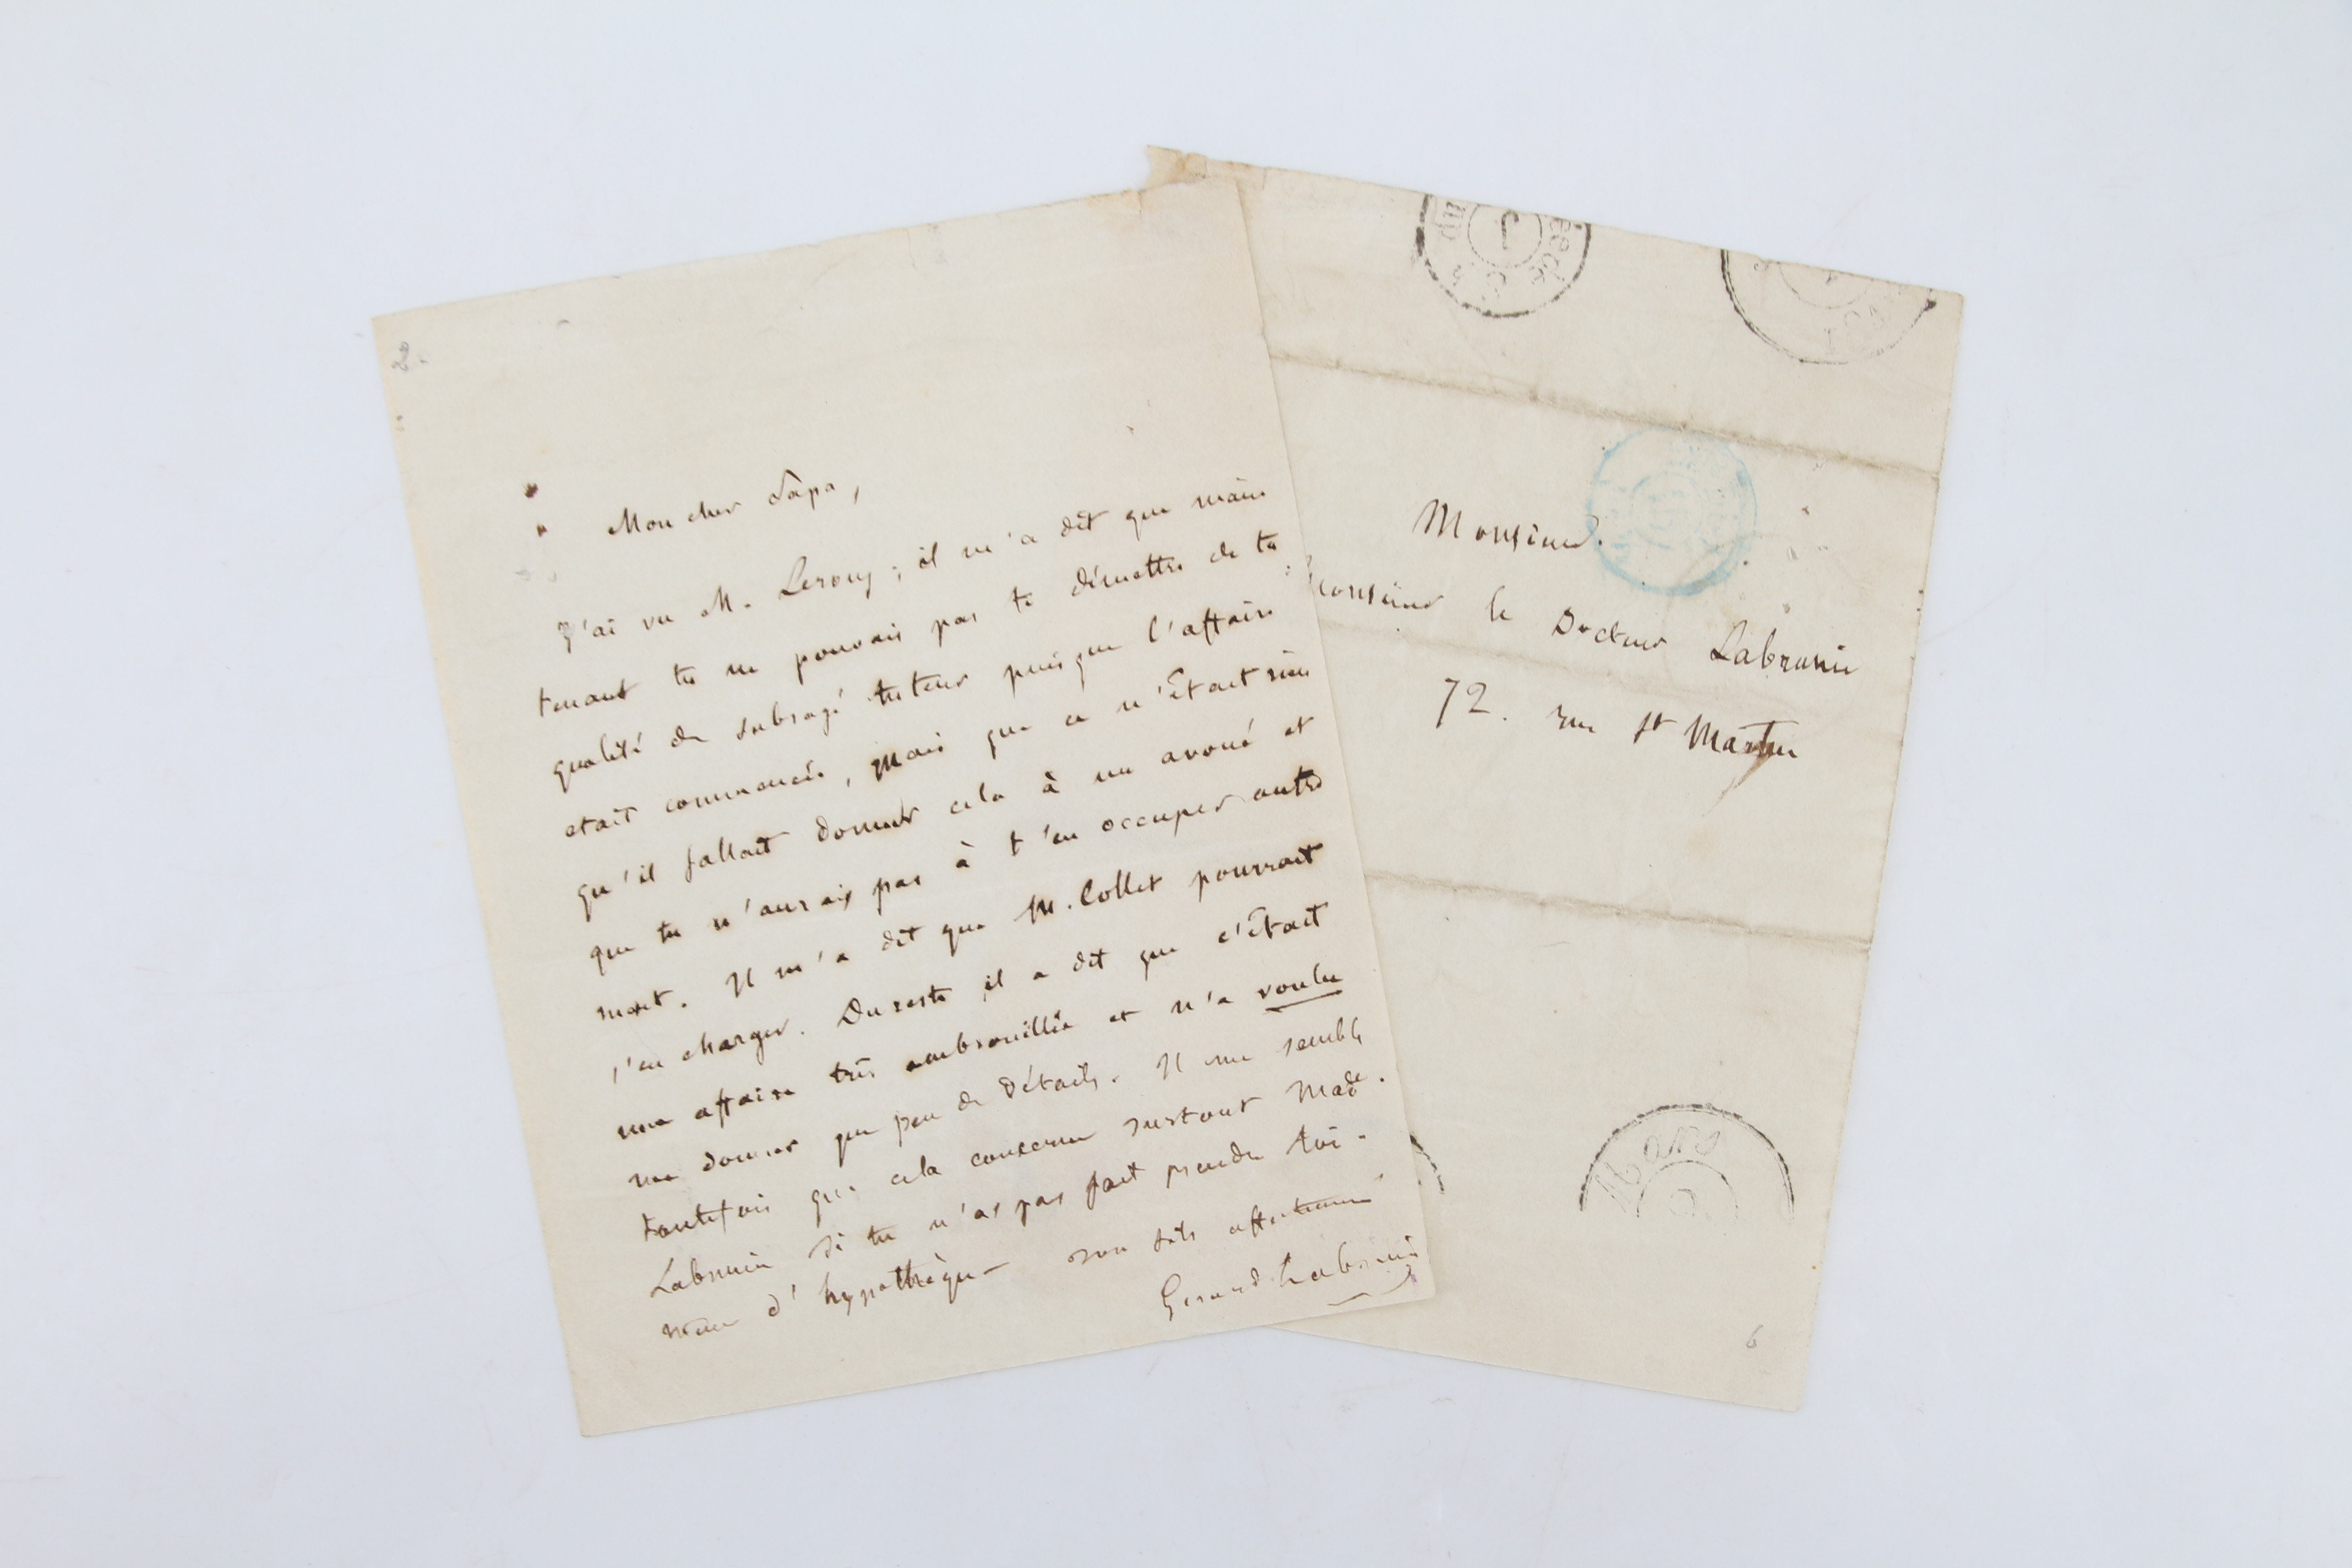 2.
Mon cher Papa,
J'ai vu M. Leroy ; il m'a dit que main
tenant tu ne pouvais pas te démettre de ta
qualité de subrogé tuteur puisque l'affaire
etait commencée, mais que ce n'était rien
qu'il fallait donner cela à un avoué et
que tu n'aurais pas à t'en occuper autre
ment. Il m'a dit que M. Collet pourrait
s'en charger. Du reste il a dit que c'était
une affaire très embrouillée et n'a voulu
me donner que peu de détails. Il me semble
toutefois que cela concerne surtout Made.
Labrunie si tu n'as pas fait prendre toi-
même d'hypothèque — ton fils affectionné
Gerard Labrunie
Monsieur.
Monsieur le Docteur Labrunie
72. rue St Martin
Mars
6